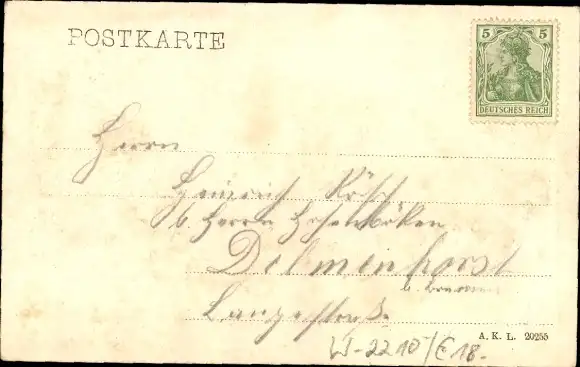 POSTKARTE
5 5
DEUTSCHES REICH
Herrn
Heinrich
b. Herrn
Delmenhorst
b. Bremen
Langestraße
A. K. L. 20255
W-2210/E18.-